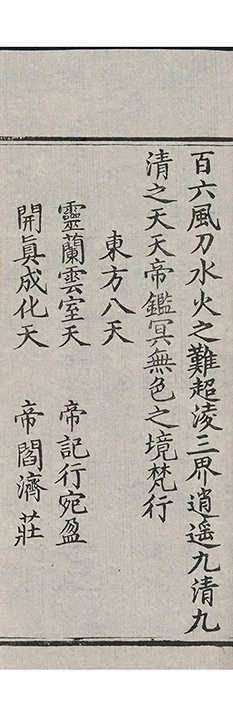 百六風刀水火之難超淩三界逍遥九清九
清之天天帝鑑冥無色之境梵行
東方八天
靈蘭雲室天　帝記行宛盈
開眞成化天　帝閻濟莊